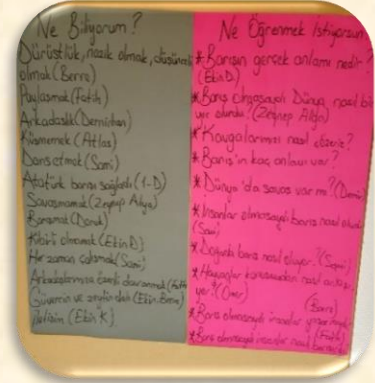 Ne Biliyorum?
Dürüstlük, nazik olmak, düşünceli
olmak (Berre)
Paylaşmak (Fatih)
Arkadaşlık (Demirhan)
Küsmemek (Atlas)
Dans etmek (Sami)
Atatürk barışı sağladı (1-D)
Savaşmamak (Zeynep Alya)
Barışmak (Doruk)
Kibirli olmamak (Ekin D)
Her zaman çalışmak (Sami)
Arkadaşlarımıza özenli davranmak (Fatih)
Güvenin ve
İletişim (Ekin K)
Ne Öğrenmek İstiyorsun
* Barışın gerçek anlamı nedir?
(Ekin D.)
* Barış olmasaydı Dünya nasıl bir
yer olurdu. (Zeynep
* Kavgalarımızı nasıl çözeriz?
* Barış'ın kaç anlamı var?
* Dünya'da savaş var mı? (Demir
* İnsanlar olmasaydı barış nasıl olurdu
(Sami)
* Doğada barış nasıl oluyor? (Sami)
* Hayvanlar
yer? (Ömer)
* Barış olmasaydı insanlar
* Barış olmasaydı insanlar nasıl
(Fatih)